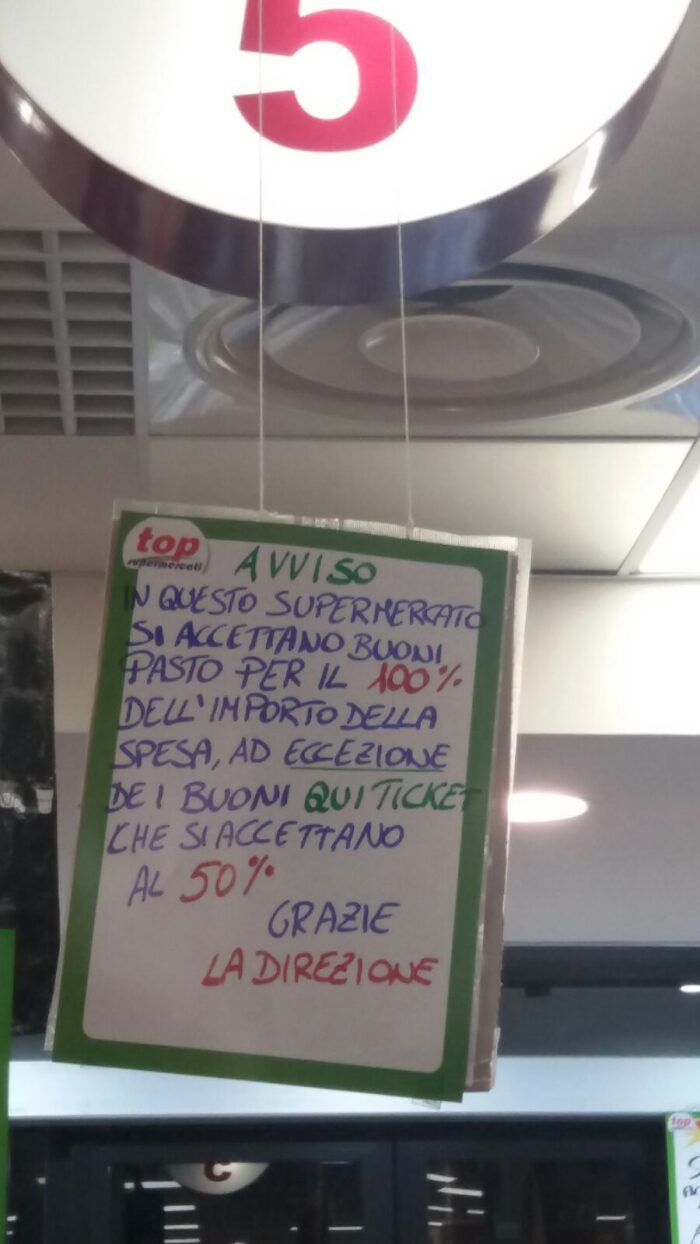 5
top
supermercati
AVVISO
IN QUESTO SUPERMERCATO
SI ACCETTANO BUONI
PASTO PER IL 100%
DELL'IMPORTO DELLA
SPESA, AD ECCEZIONE
DEI BUONI QUI TICKET
CHE SI ACCETTANO
AL 50%
GRAZIE
LA DIREZIONE
top